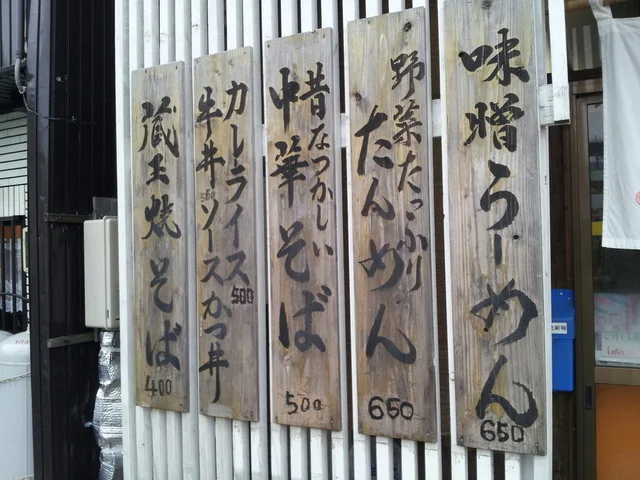 味噌らーめん
650
野菜たっぷり
たんめん
650
昔なつかしい
中華そば
500
カレーライス
500
牛丼 ソースかつ丼
蔵王焼そば
400